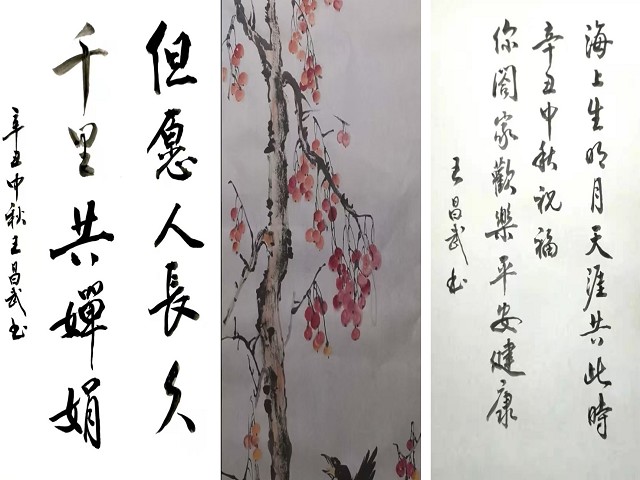 但愿人長久
千里共嬋娟
辛丑中秋王昌武书
海上生明月天涯共此時
辛丑中秋祝福
你閤家歡樂平安健康
王昌武书